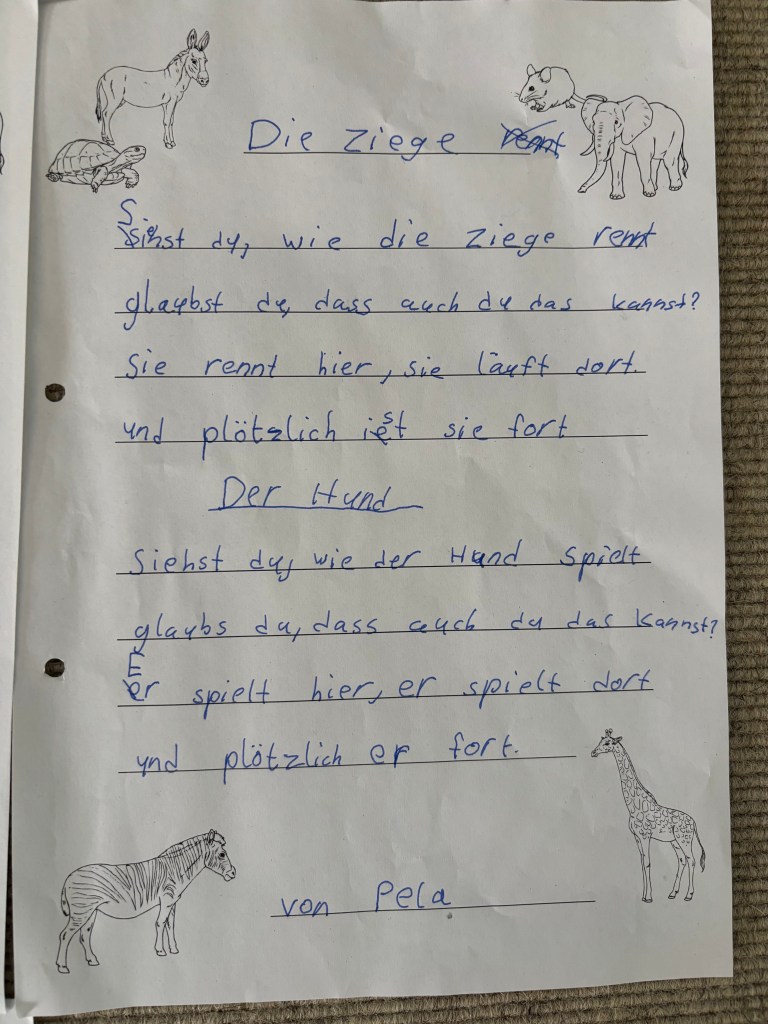 Die Ziege rennt
Siehst du, wie die Ziege rennt
glaubst du, dass auch du das kannst?
Sie rennt hier, sie läuft dort.
und plötzlich ist sie fort
Der Hund
Siehst du, wie der Hund spielt
glaubs du, dass auch du das kannst?
Er spielt hier, er spielt dort
und plötzlich er fort.
von Pela